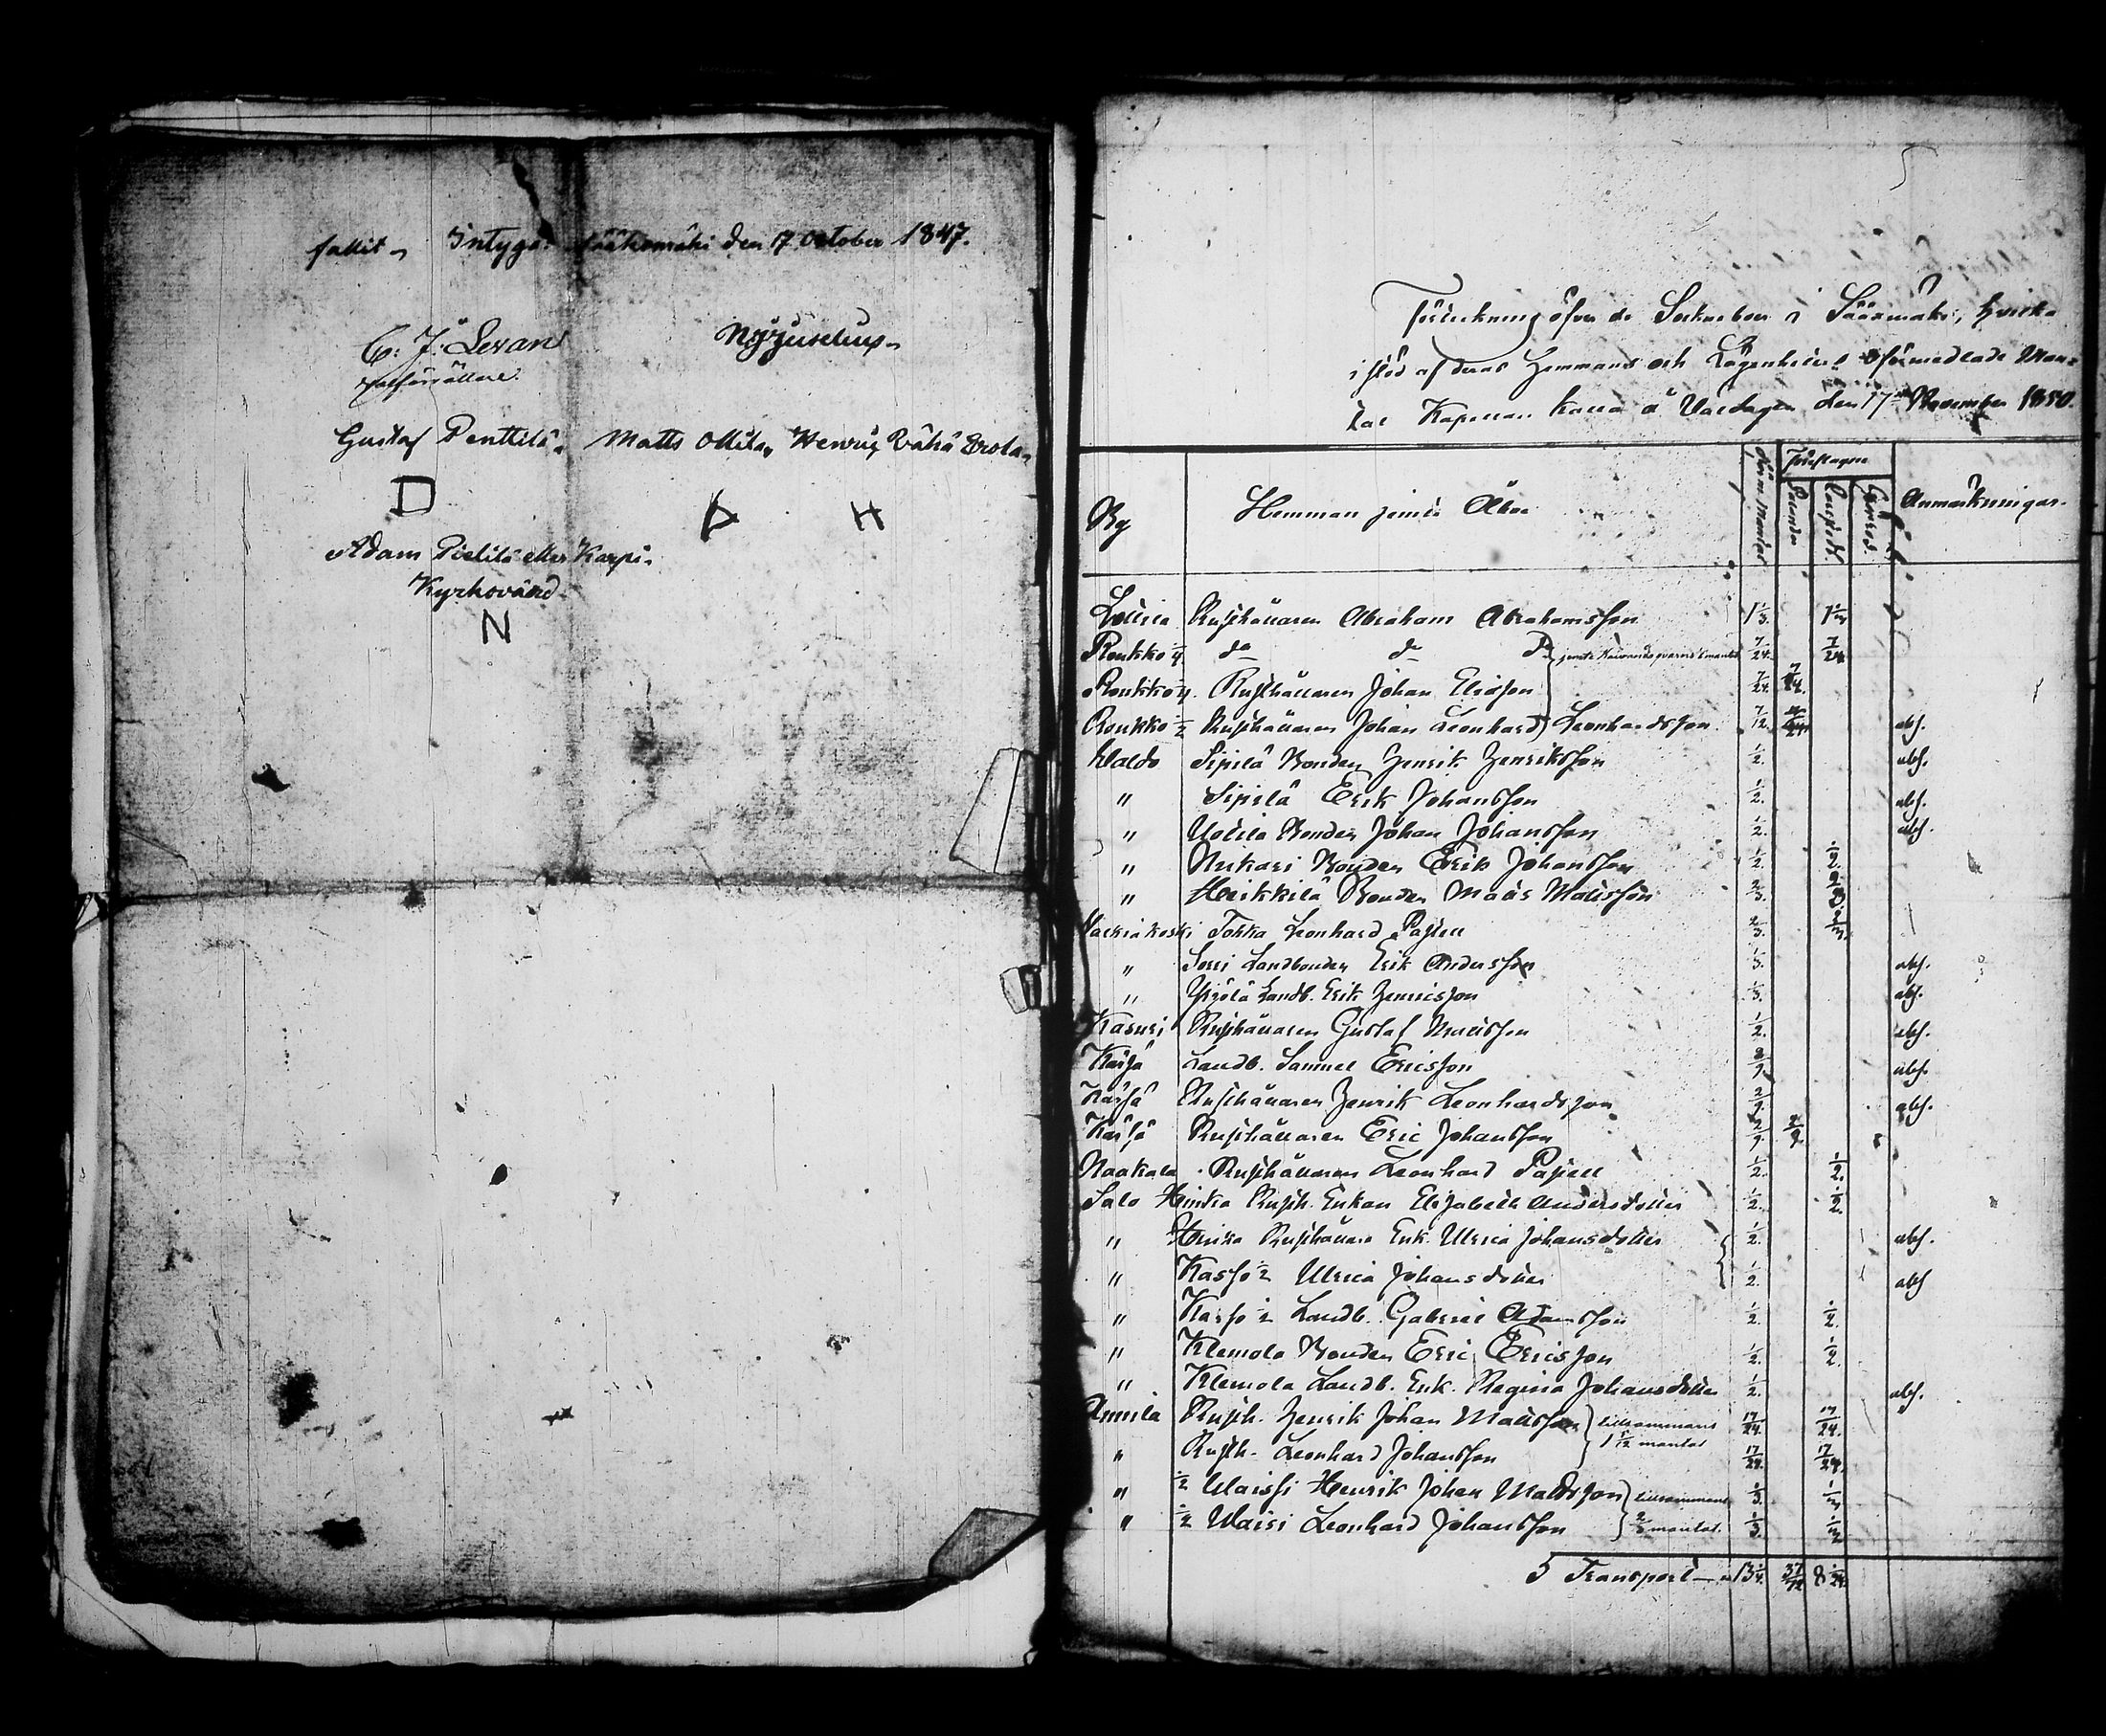 fallit. Intygar Sääksmäki den 17 October 1847.
C: J: Levan
Gustaf Penttilä. Matts Ollila, Henric Vähä Erola.
Adam Pietilä eller Karpi.
Kyrkovärd.
N
5
Förteckning öfver de Sockneboer i Sääxmäki, hvilka
i stöd af deras Hemmans och Lägenheters oförmedlade Man-
tal Kapellan kalla å Valdagen den 17de November 1850.
By
Hemman jemte Åboe
Oförm. Mantal
Föreslagne
Anmärkningar.
Lotila Rusthållaren Abraham Abrahamsson 1 1/3. 1 1/3
Roukko 1/4 do do do 7/24. 7/24
Roukko 1/4. Rusthållaren Johan Eliasson 7/24. 7/24.
Roukko 1/2 Rusthållaren Johan Leonhard Leonhardsson 7/12. abs.
Waldo Sipilä Bonden Henrik Henriksson 1/2. abs.
" Sipilä Erik Johansson 1/2. abs.
" Uotila Bonden Johan Johansson 1/2. abs.
" Nukari Bonden Erik Johansson 1/2. 1/2.
" Heikkilä Bonden Matts Mattsson 2/3.
Walkiakoski Tokka Leonhard Pajell 2/3.
" Sorri Landbonden Erik Andersson 1/3. abs.
" Yrjölä Landb. Erik Henricsson 1/3. abs.
Kasuri Rusthållaren Gustaf Mattsson 1/2. abs.
Kärjä Landb. Samuel Ericsson 2/9. abs.
Kärjä Rusthållaren Henrik Leonhardsson 2/9. abs.
Kärjä Rusthållaren Eric Johansson 2/9 2/9
Naakala Rusthållaren Leonhard Pajell 1/2. 1/2.
Salo Heikka Rusth. Enkan Elisabeth Andersdotter 1/2. 1/2.
" Rusthållare Enk. Ulrica Johansdotter 1/2. abs.
" 1/2 Ulrica Johansdotter 1/2. abs
" 1/2 Landb. Gabriel Adamsson 1/2. 1/2.
" Klemola Bonden Eric Ericsson 1/2. 1/2.
" Klemola Landb. Enk. Regina Johansdotter 1/2. abs.
Annila Rusth. Henrik Johan Mattsson tillsammans 17/24. 17/24.
1 5/12 mantal
" Rusth. Leonhard Johansson 17/24. 17/24.
" 1/2 Waissi Henrik Johan Mattsson tillsammans 1/3. 1/3
" 1/2 Waissi Leonhard Johansson 2/3 mantal. 1/3. 1/3
Transport